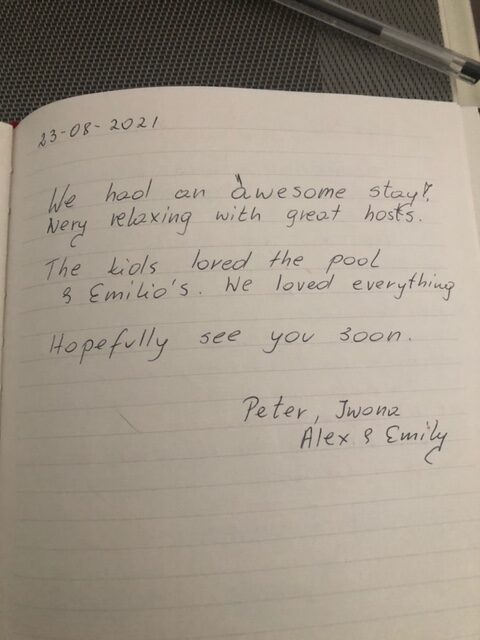 23-08-2021
We had an awesome stay!
Very relaxing with great hosts.
The kids loved the pool
& Emilio's. We loved everything
Hopefully see you soon.
Peter, Iwona
Alex & Emily